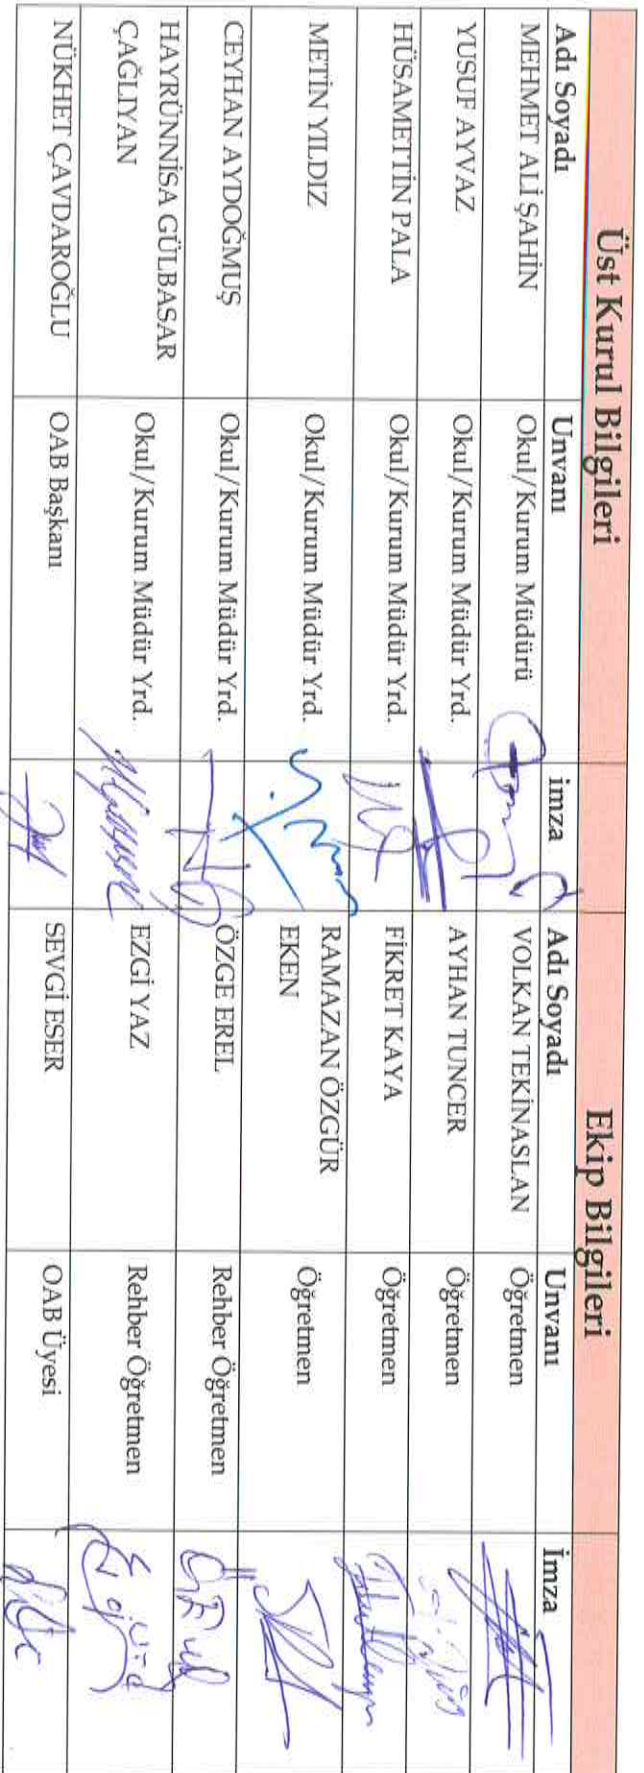 Üst Kurul Bilgileri Ekip Bilgileri
Adı Soyadı Unvanı imza Adı Soyadı Unvanı İmza
MEHMET ALİ ŞAHİN Okul/Kurum Müdürü VOLKAN TEKİNASLAN Öğretmen
YUSUF AYVAZ Okul/Kurum Müdür Yrd. AYHAN TUNCER Öğretmen
HÜSAMETTİN PALA Okul/Kurum Müdür Yrd. FİKRET KAYA Öğretmen
METİN YILDIZ Okul/Kurum Müdür Yrd. RAMAZAN ÖZGÜR
EKEN Öğretmen
CEYHAN AYDOĞMUŞ Okul/Kurum Müdür Yrd. ÖZGE EREL Rehber Öğretmen
HAYRÜNNİSA GÜLBASAR
ÇAĞLIYAN Okul/Kurum Müdür Yrd. EZGİ YAZ Rehber Öğretmen
NÜKHET ÇAVDAROĞLU OAB Başkanı SEVGİ ESER OAB Üyesi